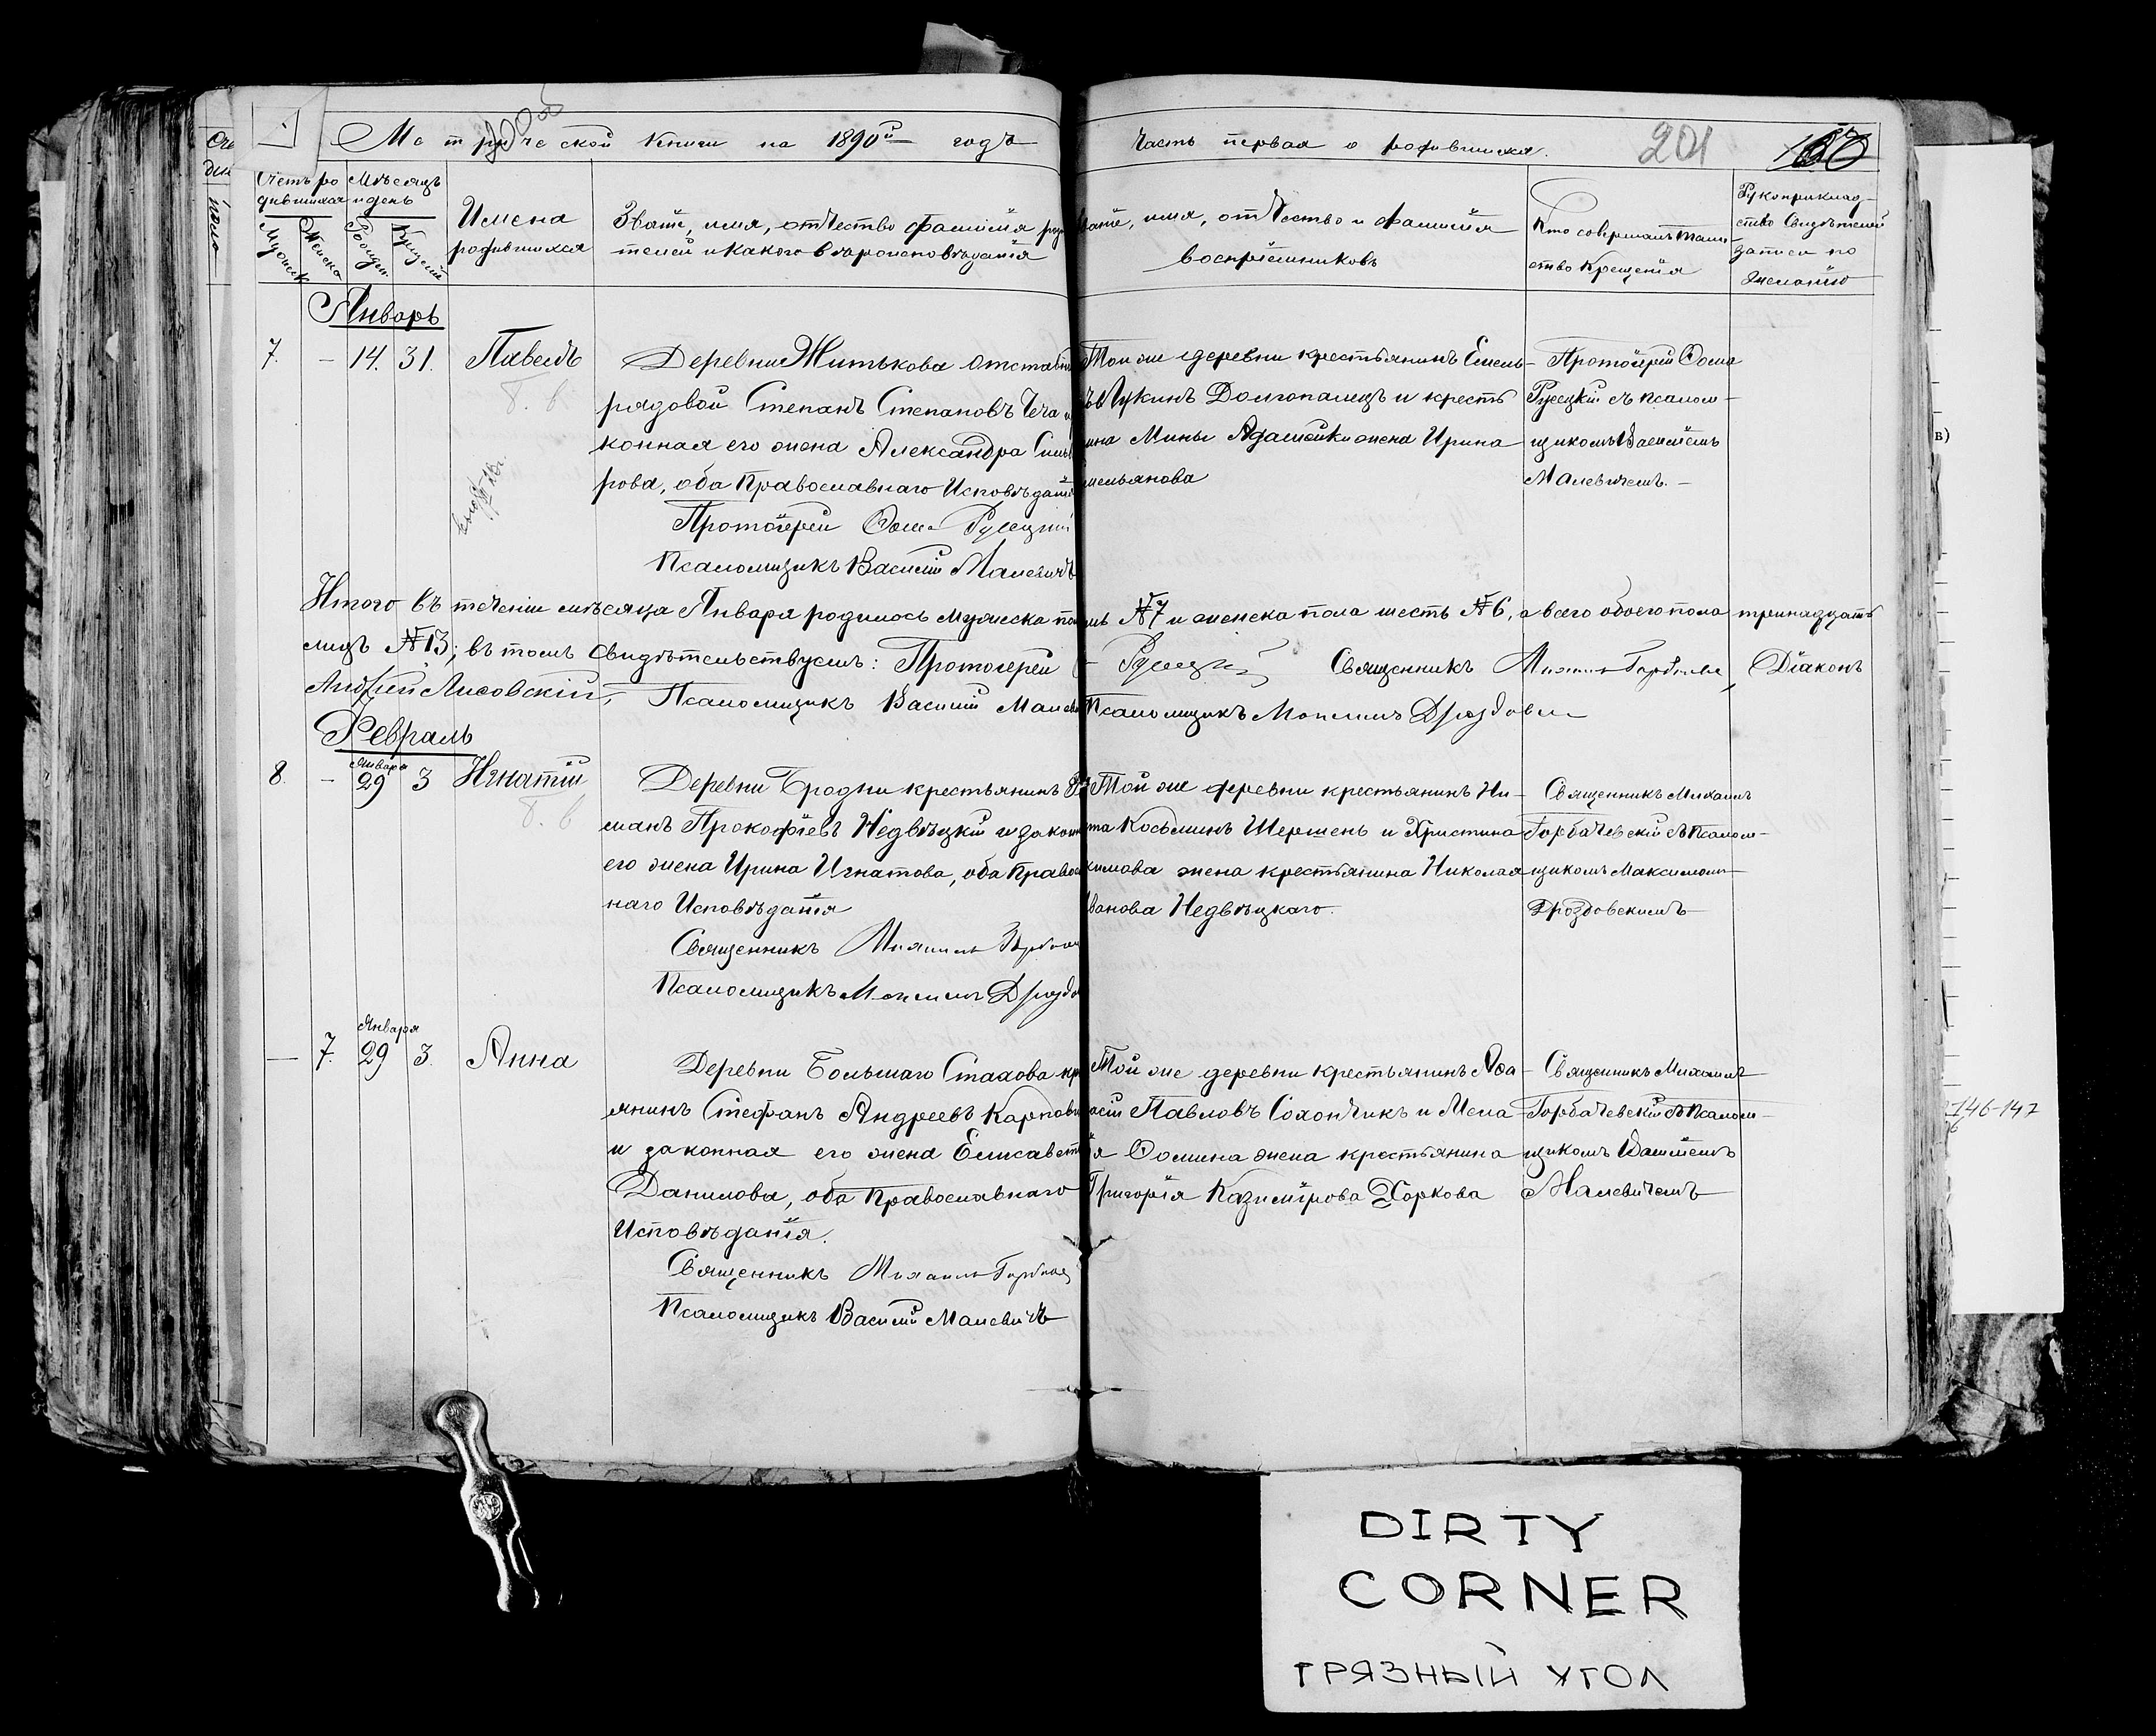 Метрической книги на 1890й годъ
Часть первая о родившихся.
201
Счетъ ро Мѣсяцъ
дившихся и день
Мужеск Женска Рожден Крещен
Имена
родившихся
Званіе, имя, отчество фамилія род
телей и какого вѣроисповѣданія
ваніе, имя, отчество и фамилія
воспріемниковъ
Кто совершалъ таин
ство крещенія
Рукоприклад-
ство свидѣтелей
записи по
желанію
Январь
7. – 14. 31. Павелъ
Деревни Житькова отставн
рядовой Степанъ Степановъ
конная его жена Александра
рова, оба Православнаго Исповѣдані
Протоіерей Ѳома Русецкій
Псаломщикъ Василій Малевичъ
Той же деревни крестьянинъ Емель-
Долгопалецъ и кресть
Мины жена Ирина
мельянова
Протоіерей Ѳома
Русецкій съ псалом-
щикомъ Василіемъ
Малевичемъ. –
Итого въ теченіи мѣсяца Января родилось мужеска по
мь №7 и женска пола шесть №6, а всего обоего пола тринадцать
лицъ №13; въ томъ свидѣтельствуемъ: Протоіерей
Русецкій Священникъ Михаилъ Горбачев, Діаконъ
Андрей Лисовскій, Псаломщикъ Василій Малев
Псаломщикъ Максимъ Дроздовс
Февраль
Января
8. – 29 3 Игнатій
Деревни Бродни крестьянинъ Р
манъ Прокофіевъ Недвѣцкій и закон
его жена Ирина Игнатова, оба Правос
наго Исповѣданія
Священникъ Михаилъ Горбач
Псаломщикъ Максимъ Дроздо
Той же деревни крестьянинъ Ни-
та Косьминъ Шершень и Христина
кимова жена крестьянина Николая
ванова Недвѣцкаго.
Священникъ Михаилъ
Горбачевскій съ Псалом-
щикомъ Максимомъ
Дроздовскимъ
Января
– 7. 29 3. Анна
Деревни Большаго Стахова кр
янинъ Стефанъ Андреевъ Карпови
и законная его жена Елисавет
Данилова, оба Православнаго
Исповѣданія.
Священникъ Михаилъ Горбачев
Псаломщикъ Василій Малевичъ
Той же деревни крестьянинъ
Павловъ Сохончикъ и Мела
я Ѳомина жена крестьянина
Григорія Казимірова Хоркова
Священникъ Михаилъ
Горбачевскій съ Псалом-
щикомъ Василіемъ
Малевичемъ
в)
146-147
DIRTY
CORNER
ГРЯЗНЫЙ УГОЛ